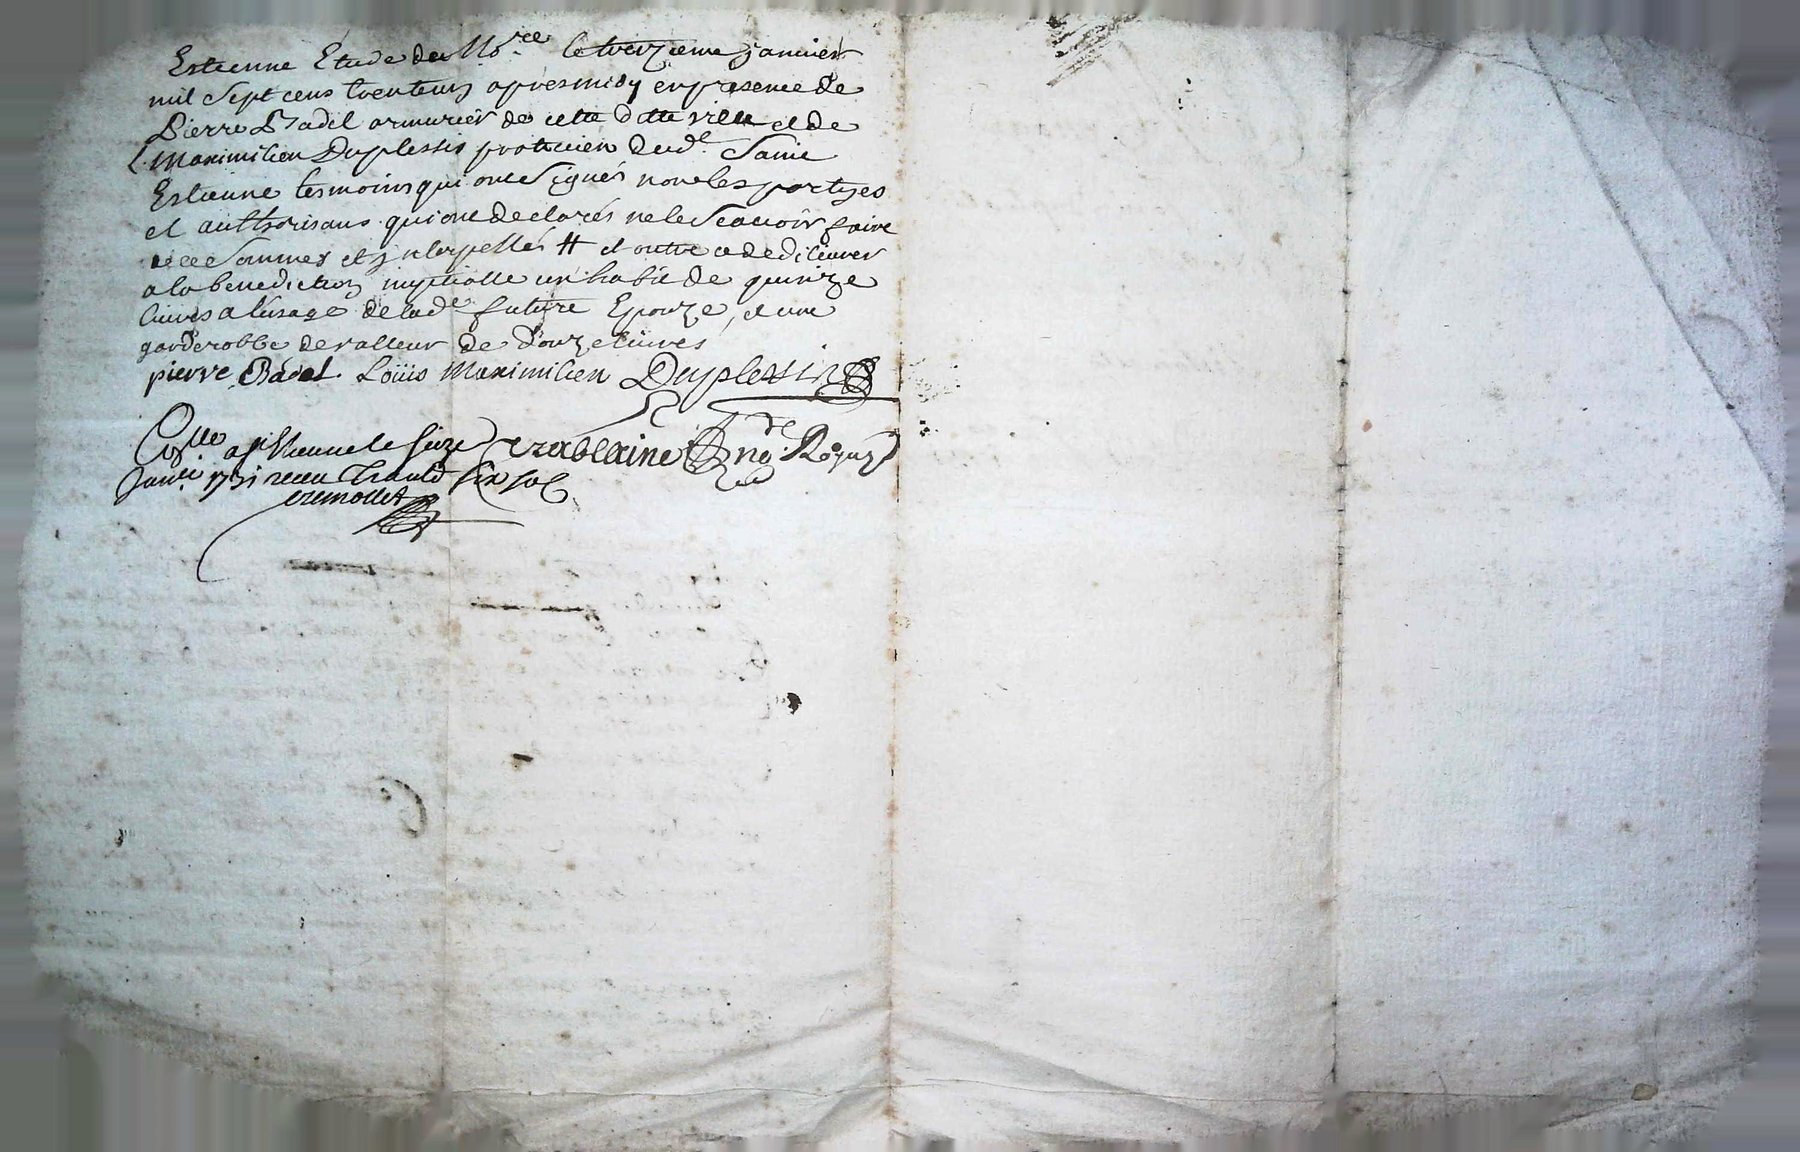 Estienne Etude du No.re le treizieme janvier
mil sept cens trente un apres midy en presence de
Pierre Badel armurier de cette ditte ville et de
L. Maximilien Duplessis praticien dud.t Saint
Estienne tesmoins qui ont signés non les partyes
et authorisans qui ont declarés ne le scavoir faire
de ce sommes et jnterpellés # et outre ce de delivrer
a la benediction nuptialle un habit de quinze
livres a l'usage de lad.e future Epouze, et une
garderobbe de valleur de douze livres
pierre Badel. Loüis Maximilien Duplessis
no.re Royal
Con.lle a St Etienne le seize
Janv.er 1731 receu six sols